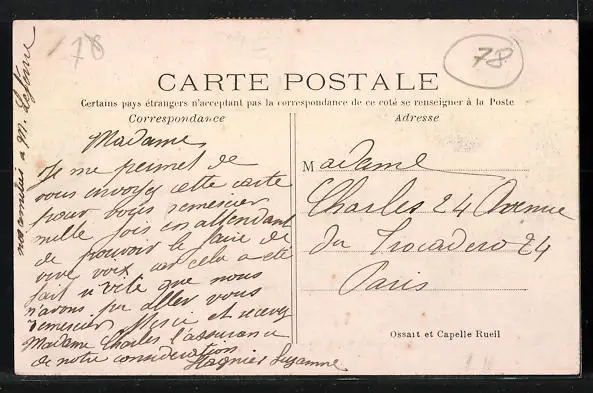 78
78
CARTE POSTALE
Certains pays étrangers n'acceptant pas la correspondance de ce coté se renseigner à la Poste
Correspondance
Adresse
Madame,
Je me permet de
vous envoyer cette carte
pour vous remercier
mille fois en attendant
de pouvoir le faire de
vive voix, car cela a été
fait si vite que nous
n'avons pu aller vous
remercier Merci et recevez
Madame Charles l'assurance
de notre considération
Suzanne
nos amitiés à M.
Madame
Charles 24 Avenue
du Trocadero 24
Paris
Ossart et Capelle Rueil